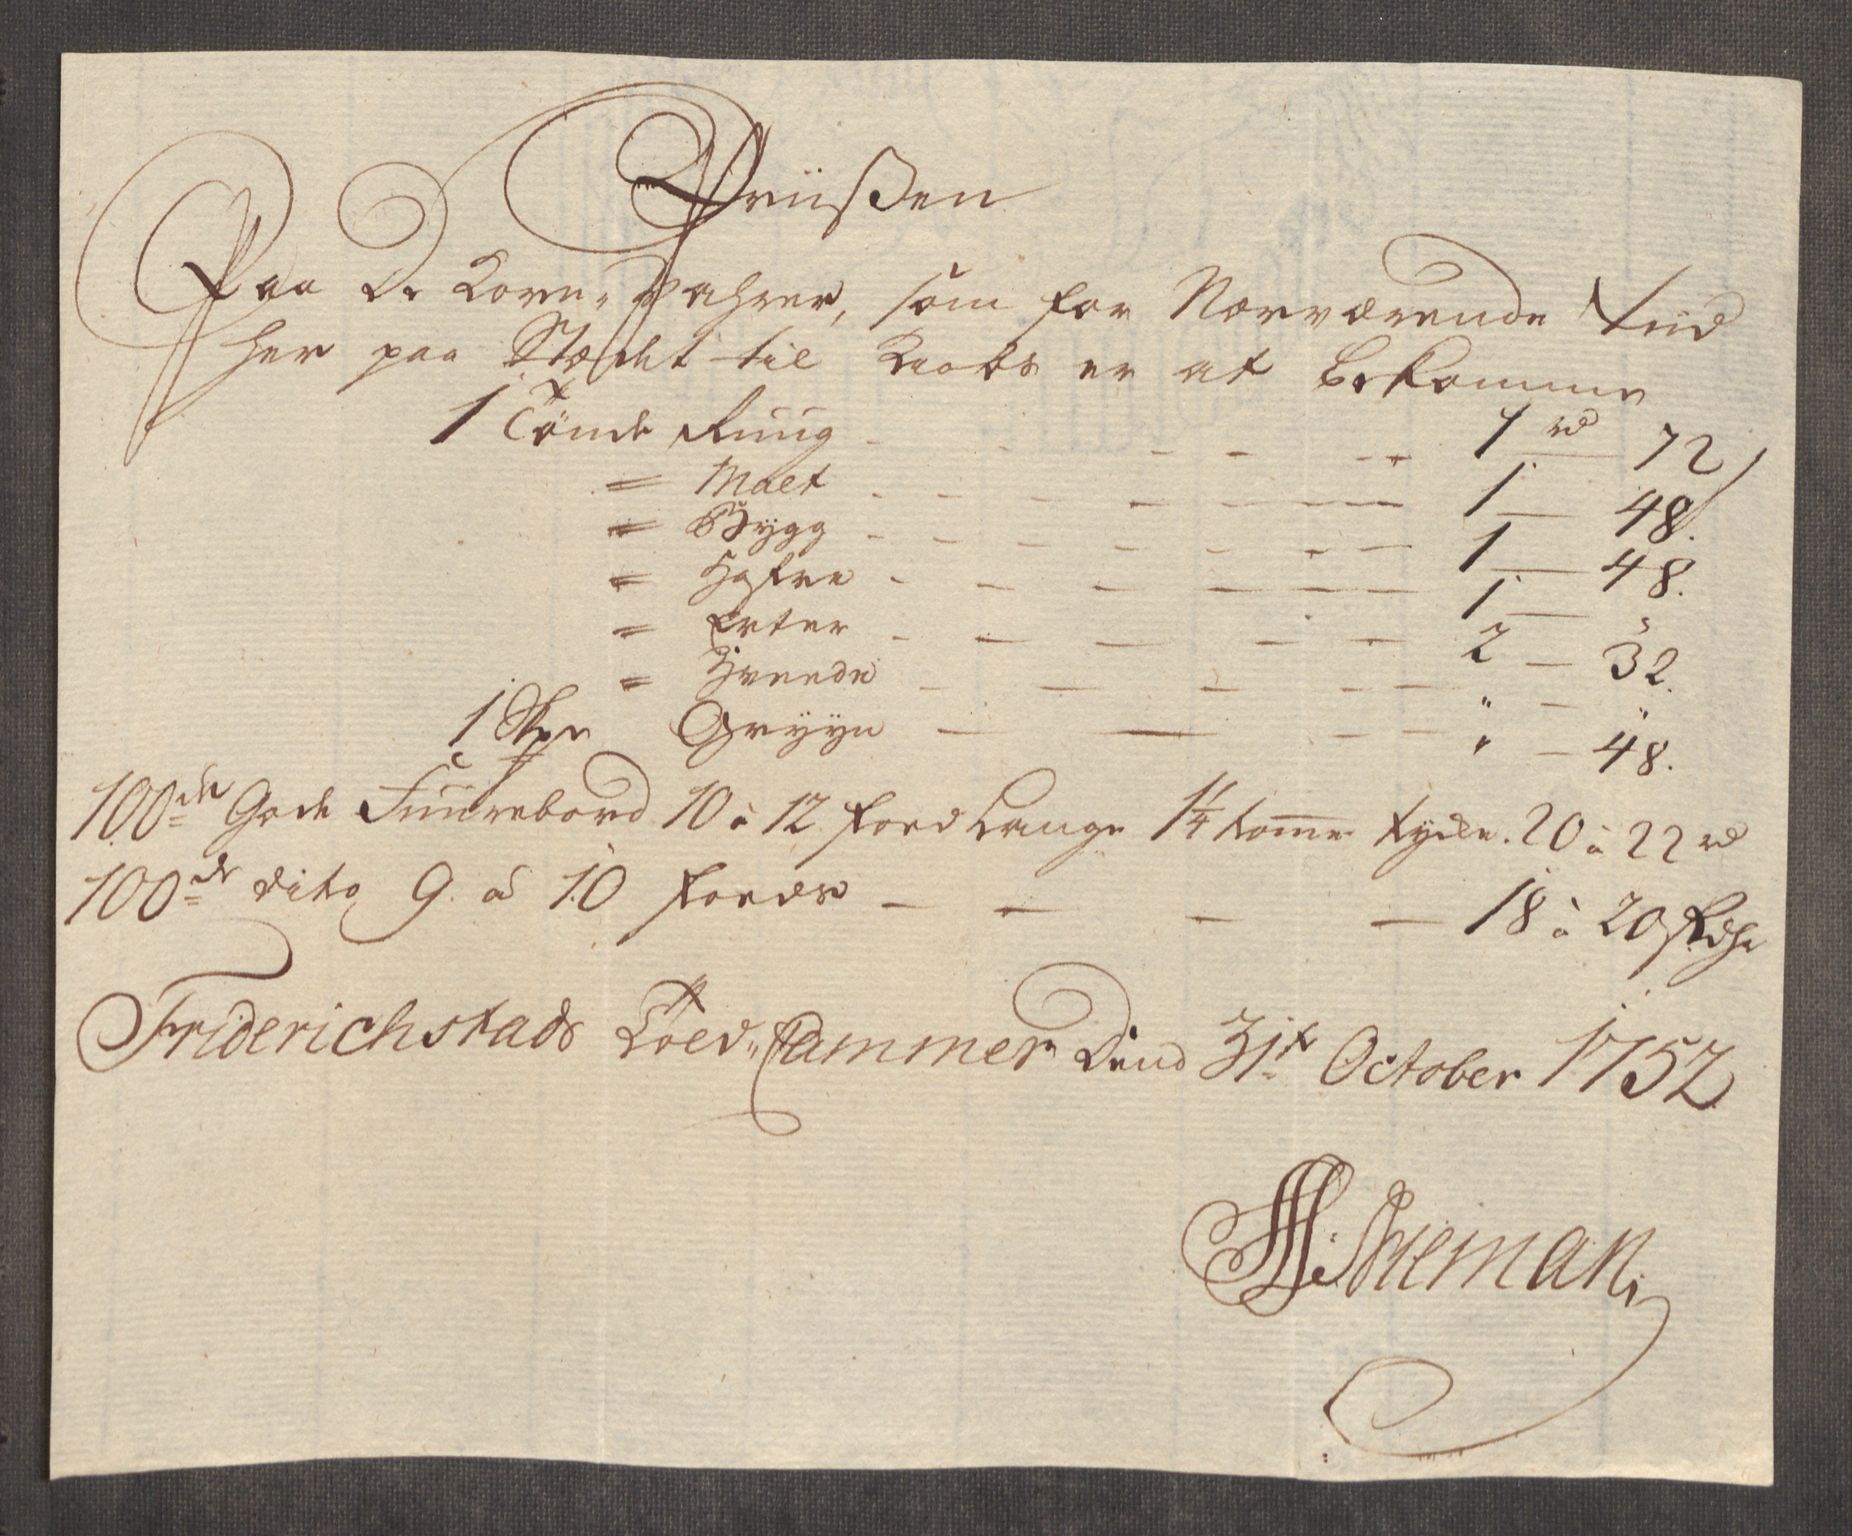 Prüsen
Paa de Korn-Wahrer, som for Nærværende Tiid
her paa Stædet til Kiøbs er at bekomme
1 Tønde Ruug - - - - 1 rd 72
= Malt - - - - - 1 — 48.
= Bygg - - - - - 1 — 48.
= Hafre - - - - - 1 — "
= Erter - - - - - 2 — 32.
= Hveede - - - - - " — "
1 Skpe Gryyn - - - - " — 48.
100de Gode Fuurebord 10 à 12 foed Lange 1¼ tomme tycke. 20 à 22 rd
100de dito 9 à 10 foeds - - - - 18 à 20 Rdhr
Friderichstads Toed-Cammer dend 31t October 1752
Stieman